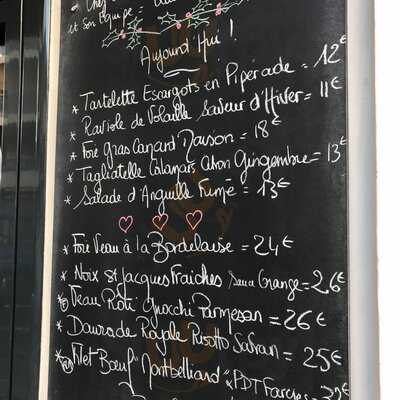 Chef
et Son Equipe =
Aujourd'Hui !
* Tartelette Escargots en Piperade = 12€
* Raviole de Volaille Saveur d'Hiver = 11€
* Foie gras Canard Maison = 18€
* Tagliatelle Calamars Gingembre = 13€
* Salade d'Anguille Fumé = 13€
* Foie Veau à la Bordelaise = 24€
* Noix St Jacques Fraiches Orange = 26€
* Veau Rôti Gnocchi Parmesan = 26€
* Daurade Royale Risotto Safran = 25€
* Filet Bœuf "Montbelliard" PDT Farcies